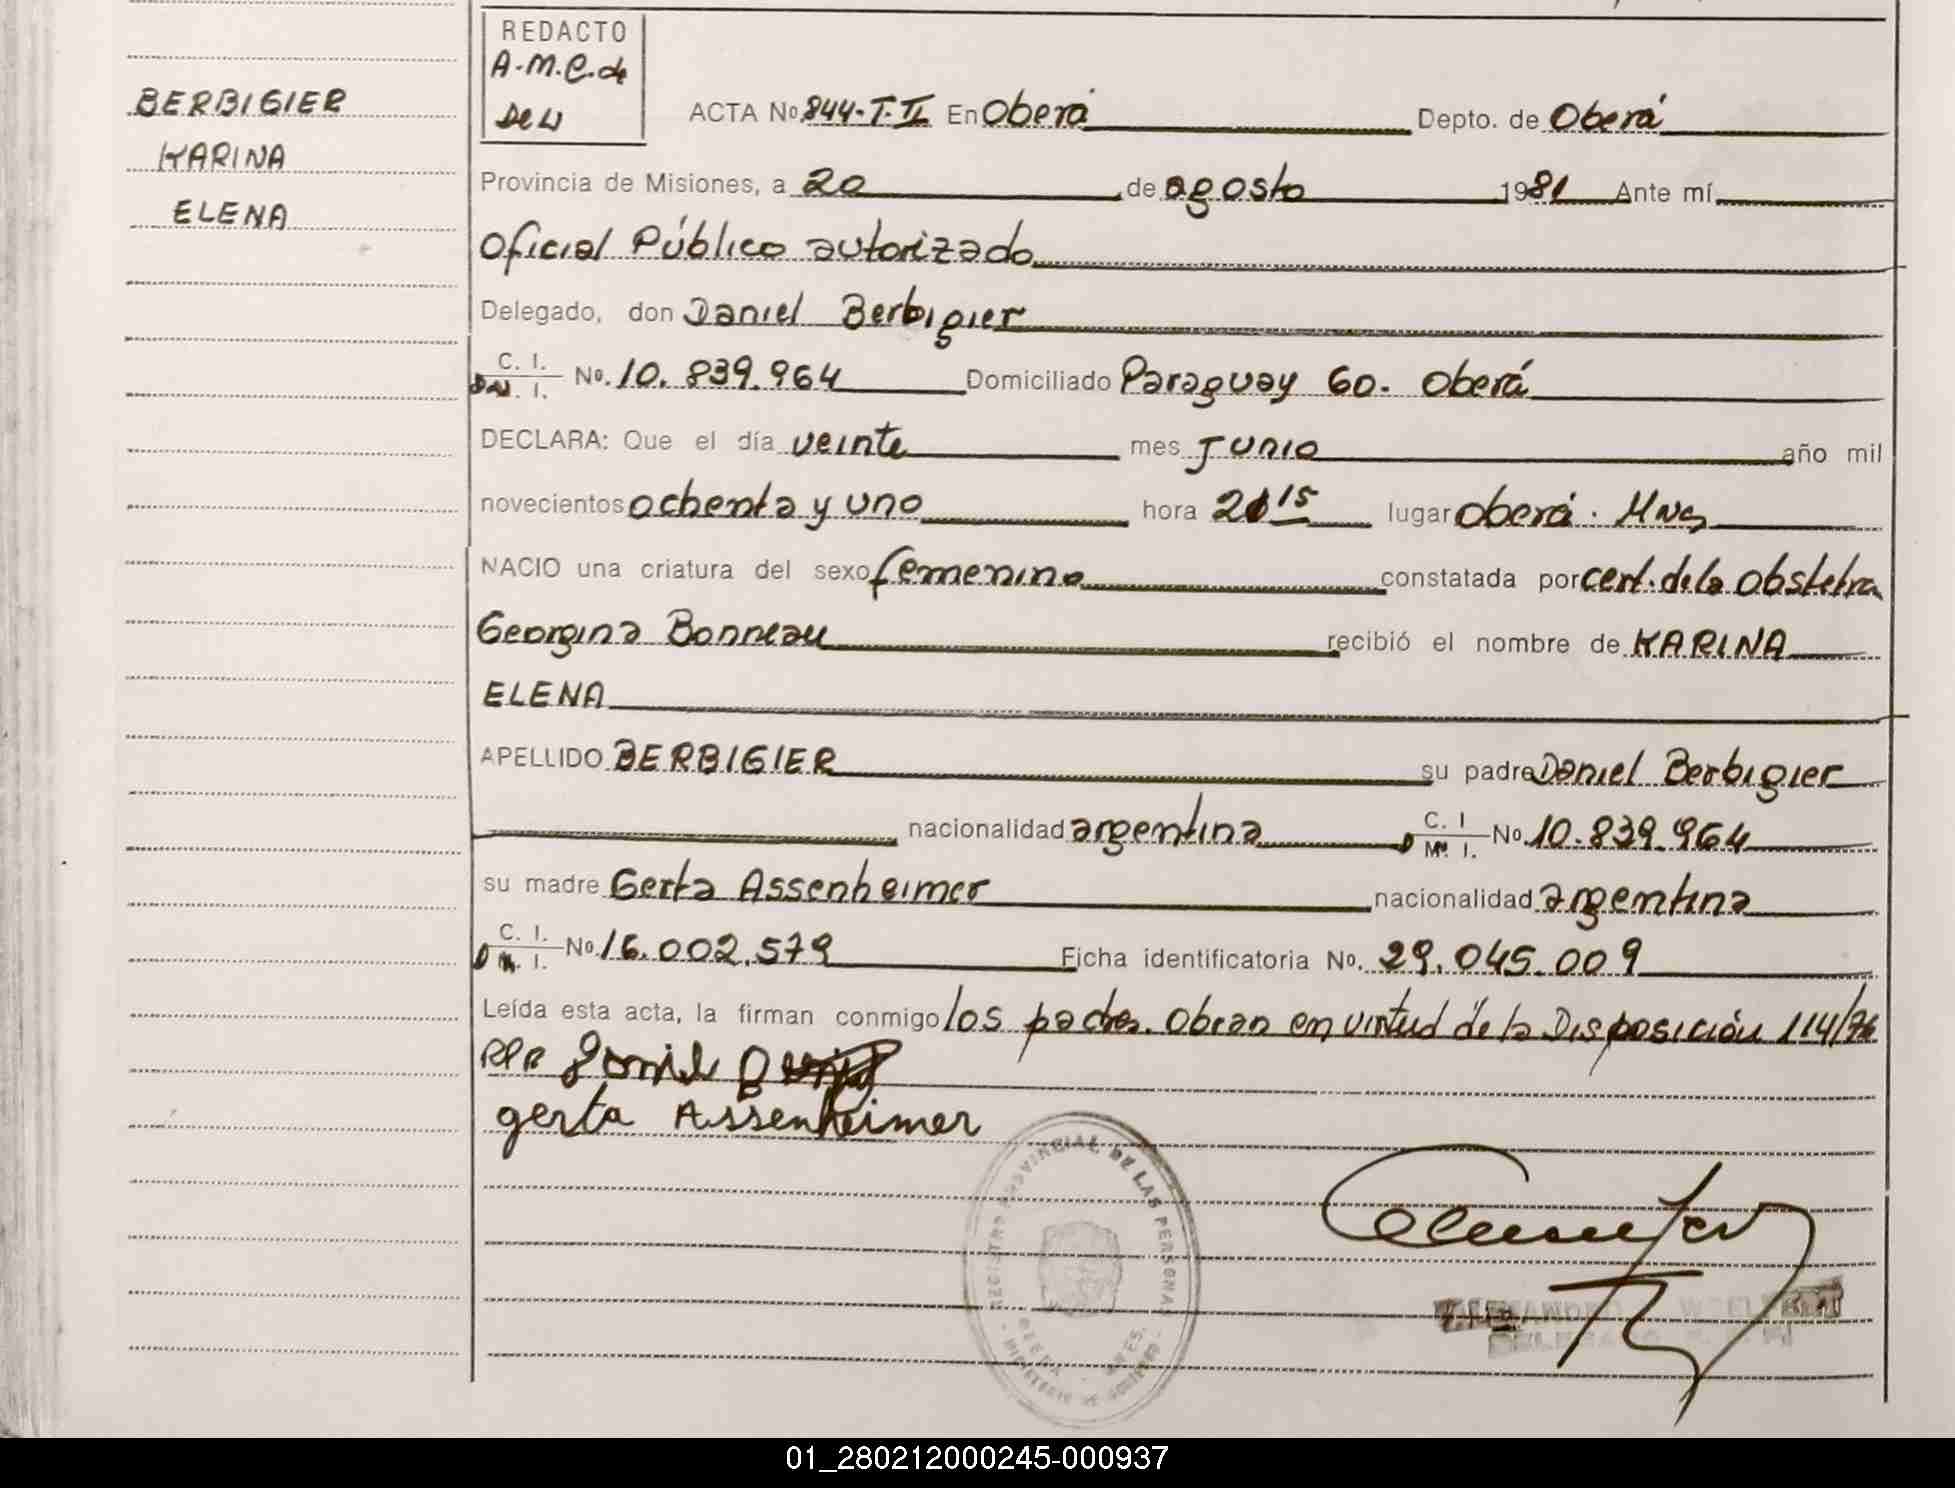 REDACTO
A.M.C. de
De W
BERBIGIER
KARINA
ELENA
ACTA No. 844-T.II En Oberá Depto. de Oberá
Provincia de Misiones, a 20 de agosto 1981 Ante mí
Oficial Público autorizado
Delegado, don Daniel Berbigier
C. I. D.N. I. No. 10.839.964 Domiciliado Paraguay 60. Oberá
DECLARA: Que el día veinte mes Junio año mil
novecientos ochenta y uno hora 21 15 lugar Oberá. Mns
NACIO una criatura del sexo femenino constatada por cert. de la obstetra
Georgina Bonneau recibió el nombre de KARINA
ELENA
APELLIDO BERBIGIER su padre Daniel Berbigier
nacionalidad argentina C. I D M. I. No. 10.839.964
su madre Gerta Assenheimer nacionalidad argentina
C. I. D I. No. 16.002.579 Ficha identificatoria No. 29.045.009
Leída esta acta, la firman conmigo los padres. Obran en virtud de la Disposición 114/76
RPP
gerta Assenheimer
REGISTRO PROVINCIAL DE LAS PERSONAS
OBERA MNES.
- MINISTERIO DE GOBIERNO -
DELEGADO
01_280212000245-000937